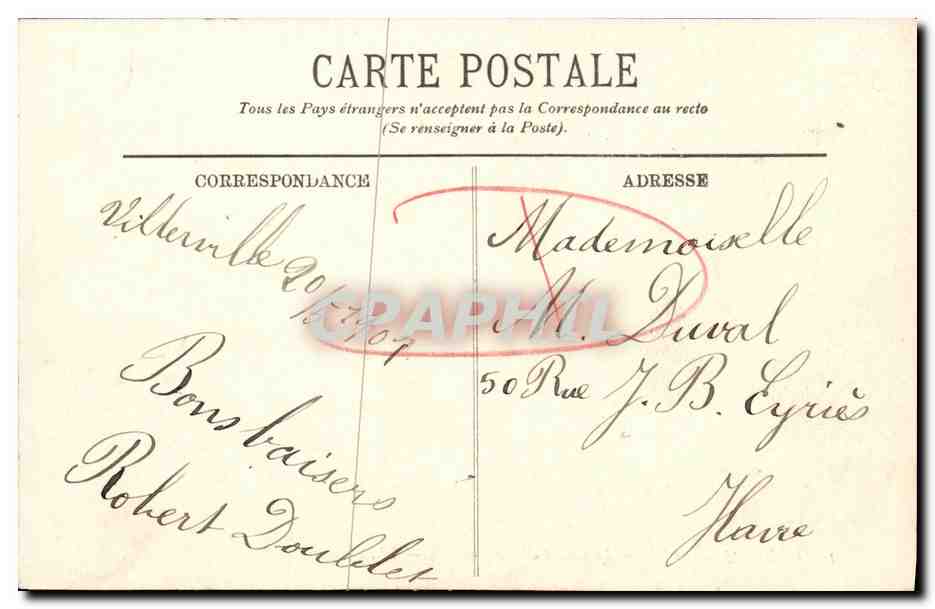 CARTE POSTALE
Tous les Pays étrangers n'acceptent pas la Correspondance au recto
(Se renseigner à la Poste).
CORRESPONDANCE
ADRESSE
Villerville 20/5 1907
Bons baisers
Robert Doublet
Mademoiselle
M. Duval
50 Rue J. B. Eyriès
Havre
CPAPHIL